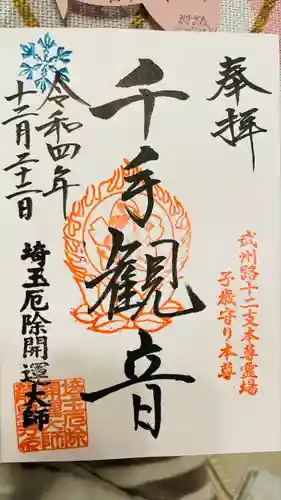 奉拝
武州路十二支本尊霊場
子歳守り本尊
千手観音
令和四年
十二月二十二日
埼玉厄除開運大師